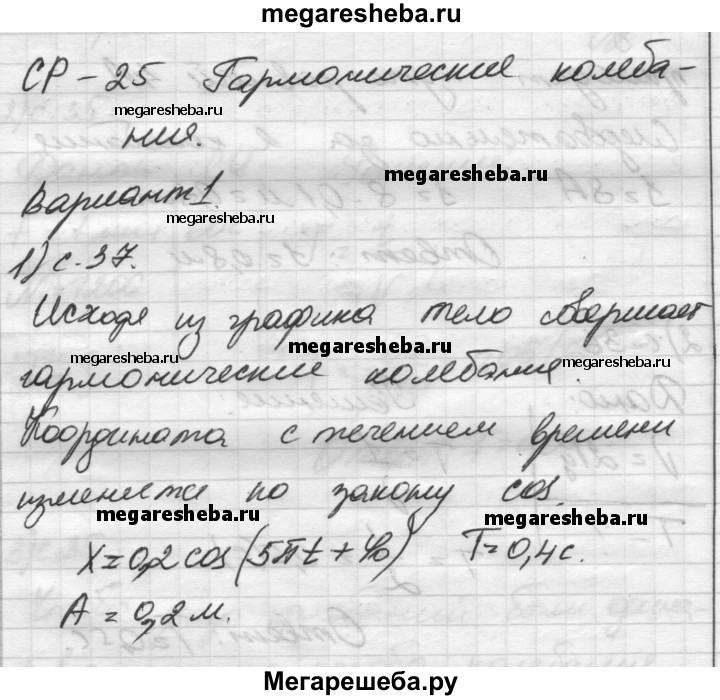 megaresheba.ru
СР-25 Гармонические колеба-
megaresheba.ru
ния.
megaresheba.ru
Вариант 1.
megaresheba.ru
1) с.37.
Исходя из графика тело совершает
megaresheba.ru
megaresheba.ru
megaresheba.ru
гармонические колебания.
Координата с течением времени
изменяется по закону cos.
megaresheba.ru
megaresheba.ru
X=0,2 cos(5πt+φ₀) T=0,4с.
A=0,2 м.
Мегарешеба.ру